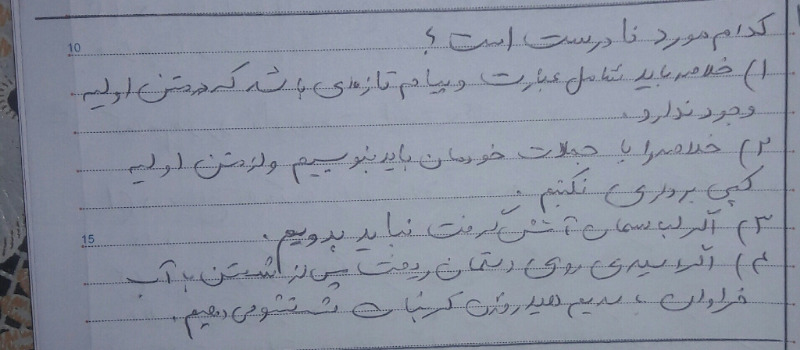 کدام مورد نادرست است ؟
۱) خلاصه باید شامل عبارت و پیام تازه‌ای باشد که در متن اولیه
وجود ندارد.
۲) خلاصه را با جملات خودمان باید بنویسیم و از متن اولیه
کپی برداری نکنیم .
۳) اگر لباسمان آتش گرفت نباید بدویم .
۴) اگر اسیدی روی دستمان ریخت پس از شستن با آب
فراوان ، سدیم هیدروژن کربنات شستشو می دهیم .
10
15